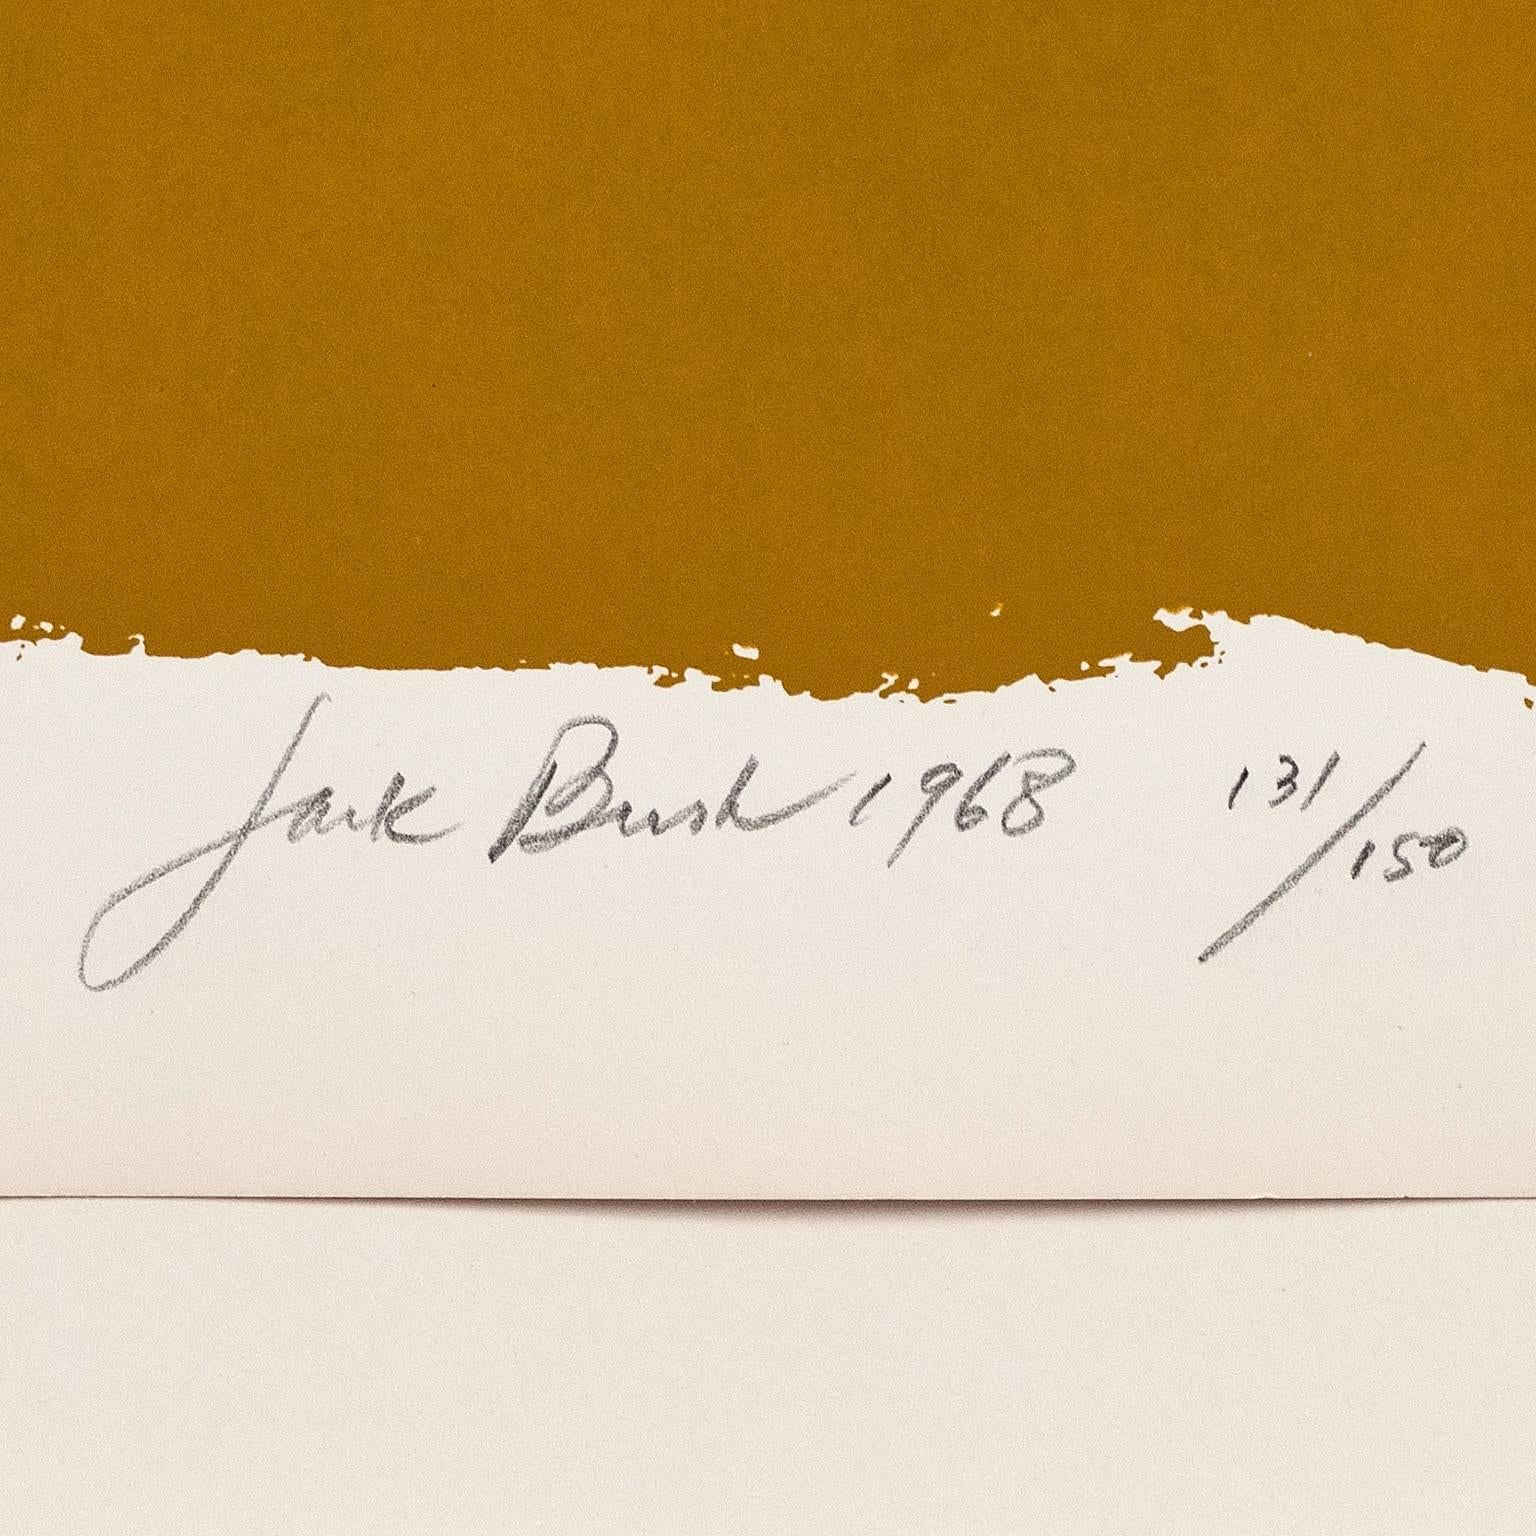 Jack Bush 1968 131/150